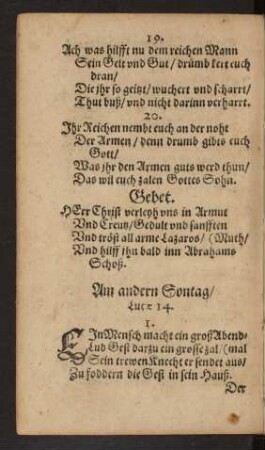 19.
Ach was hilfft nu dem reichen Mann
Sein Gelt vnd Gut / drümb kert euch
dran /
Die jhr so geitzt / wuchert vnd scharrt /
Thut buß / vnd nicht darinn verharrt.
20.
Ihr Reichen nembt euch an der noht
Der Armen / denn drumb gibts euch
Gott /
Was jhr den Armen guts werd thun /
Das wil euch zalen Gottes Sohn.
Gebet.
HErr Christ verleyh vns in Armut
Vnd Creutz / Gedult vnd sanfften
Vnd tröst all arme Lazaros / (Muth /
Vnd hilff jhn bald inn Abrahams
Schoß.
Am andern Sontag /
Luc. 14.
1.
EIn Mensch macht ein groß Abend-
Lud Gest darzu ein grosse zal / (mal
Sein trewen Knecht er sendet aus /
Zu foddern die Gest in sein Hauß.
Der